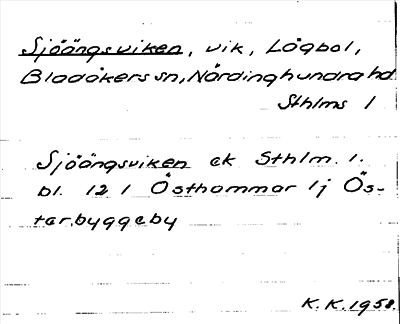 Sjöängsviken, vik, Lögbol,
Bladåkers sn, Närdinghundra hd
Sthlms l
Sjöängsviken ek Sthlm. l.
bl. 12 1 Östhammar 1j Ös-
terbyggeby
K. K. 1958.